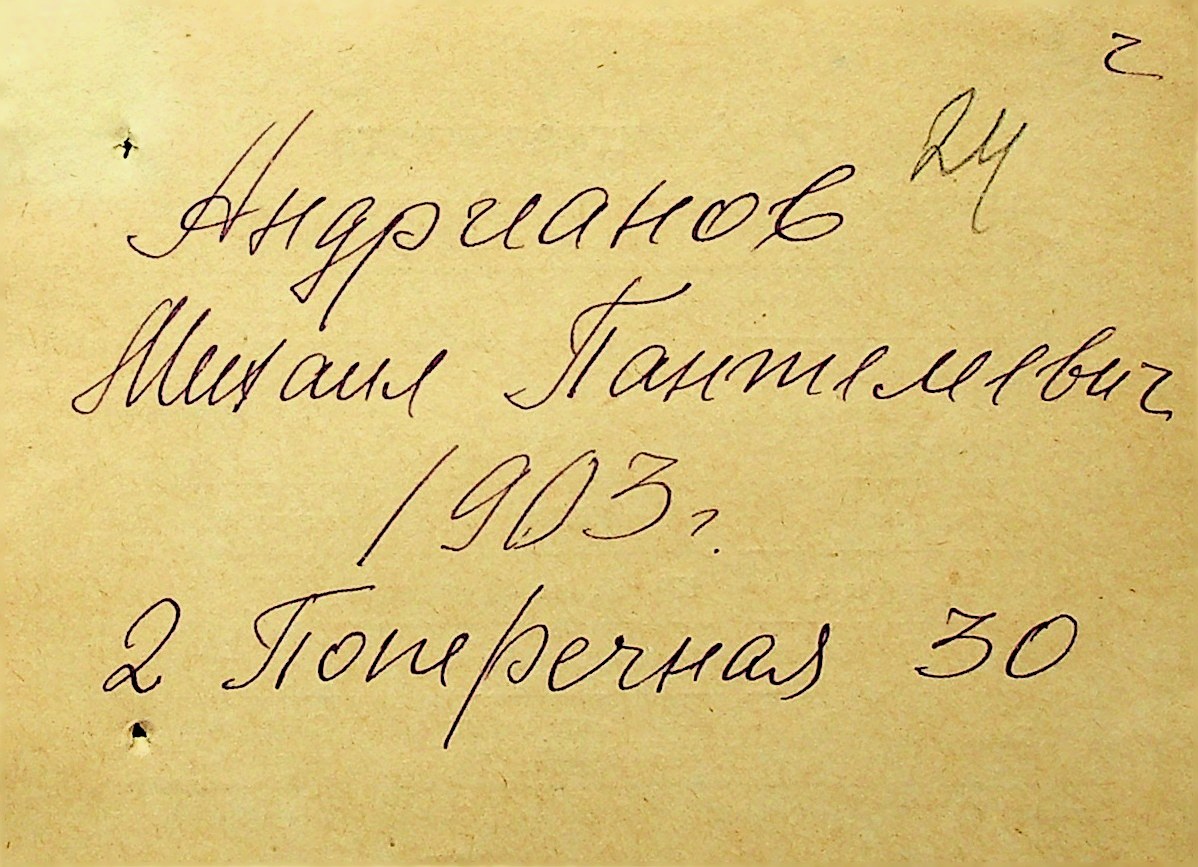 24
Андрианов
Михаил Пантелевич
1903 г.
2 Поперечная 30